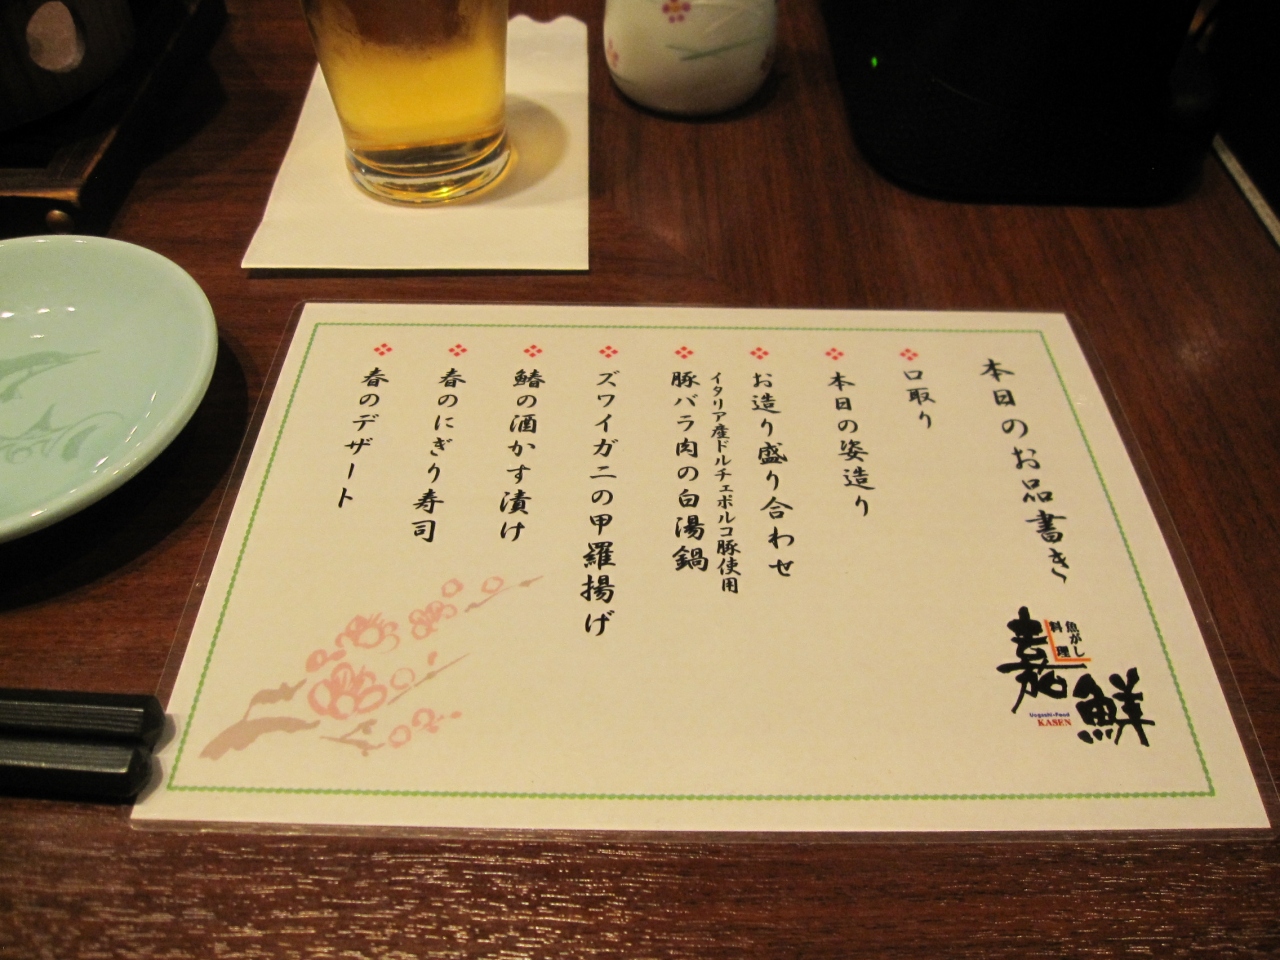 本日のお品書き
口取り
本日の姿造り
お造り盛り合わせ
イタリア産ドルチェポルコ豚使用
豚バラ肉の白湯鍋
ズワイガニの甲羅揚げ
鰆の酒かす漬け
春のにぎり寿司
春のデザート
魚がし
料理
嘉鮮
Uogashi-Food
KASEN